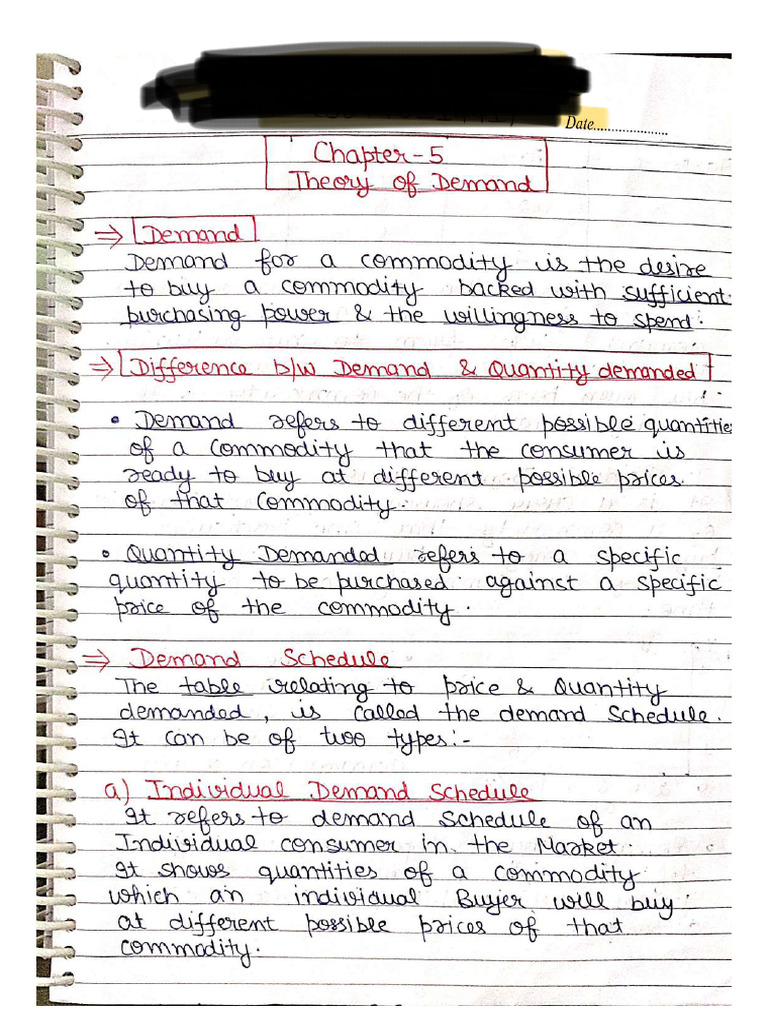 Date.....................
Chapter-5
Theory of Demand
⇒ Demand
Demand for a commodity is the desire
to buy a commodity backed with sufficient
purchasing power & the willingness to spend.
⇒ Difference b/w Demand & Quantity demanded
• Demand refers to different possible quantities
of a commodity that the consumer is
ready to buy at different possible prices
of that commodity.
• Quantity Demanded refers to a specific
quantity to be purchased against a specific
price of the commodity.
⇒ Demand Schedule
The table relating to price & Quantity
demanded, is called the demand Schedule.
It can be of two types:-
a) Individual Demand Schedule
It refers to demand schedule of an
Individual consumer in the Market.
It shows quantities of a commodity
which an individual Buyer will buy
at different possible prices of that
commodity.